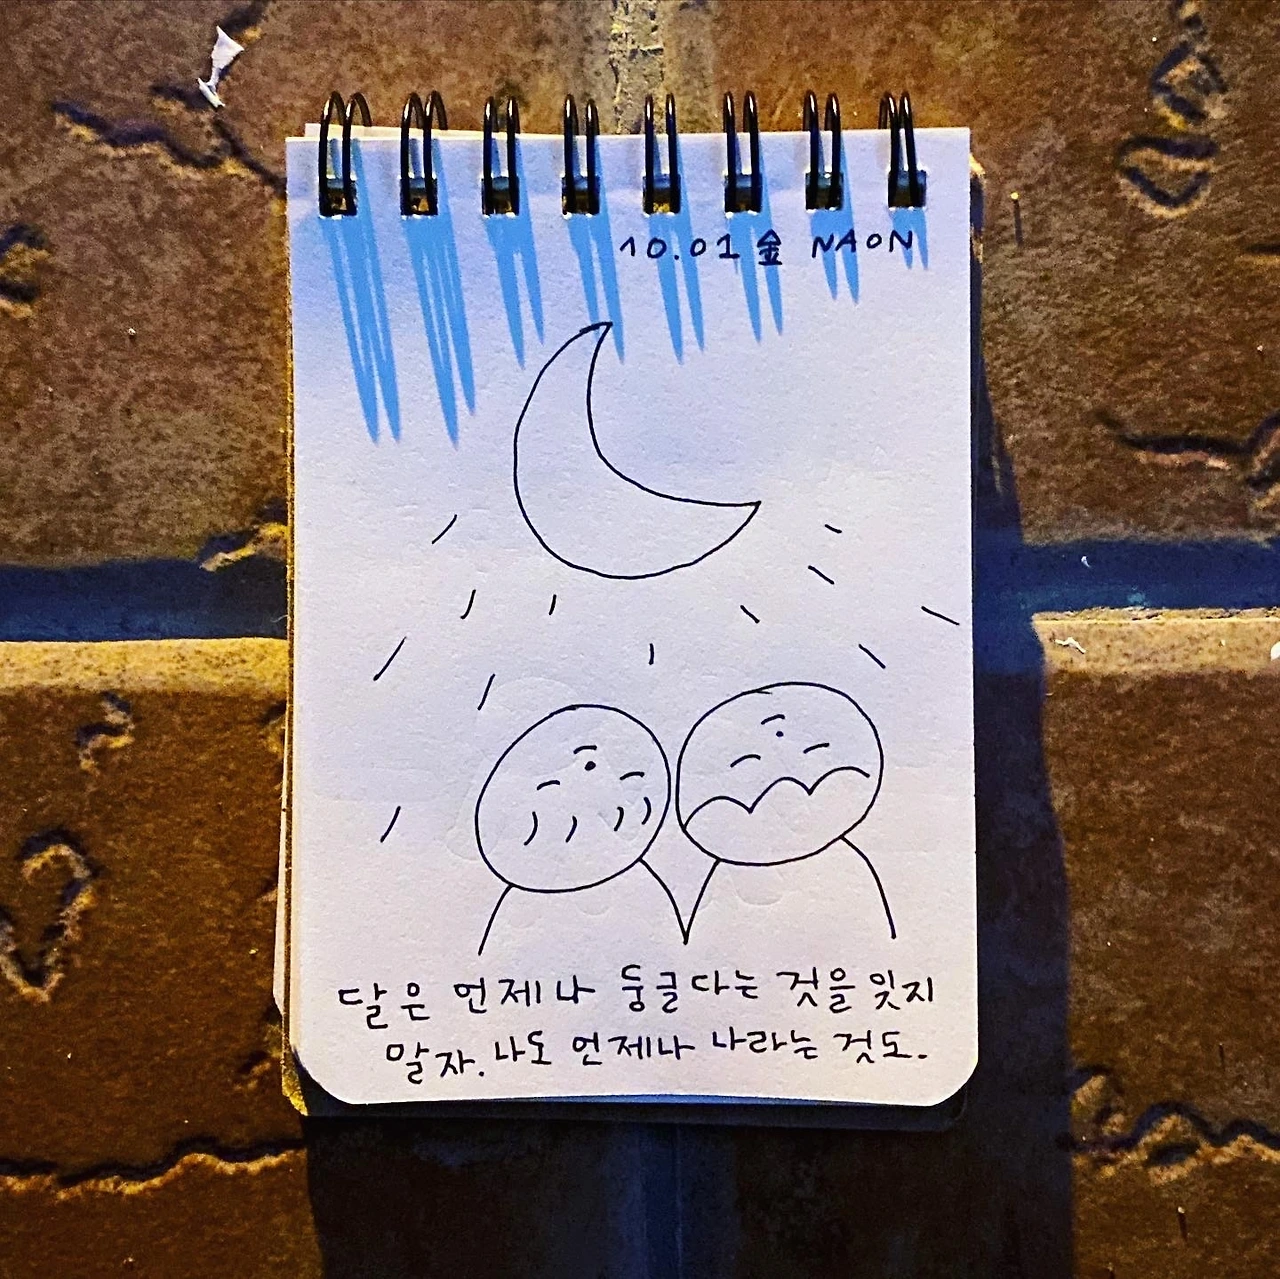 10.01 金 NAON
달은 언제나 둥글다는 것을 잊지
말자. 나도 언제나 나라는 것도.